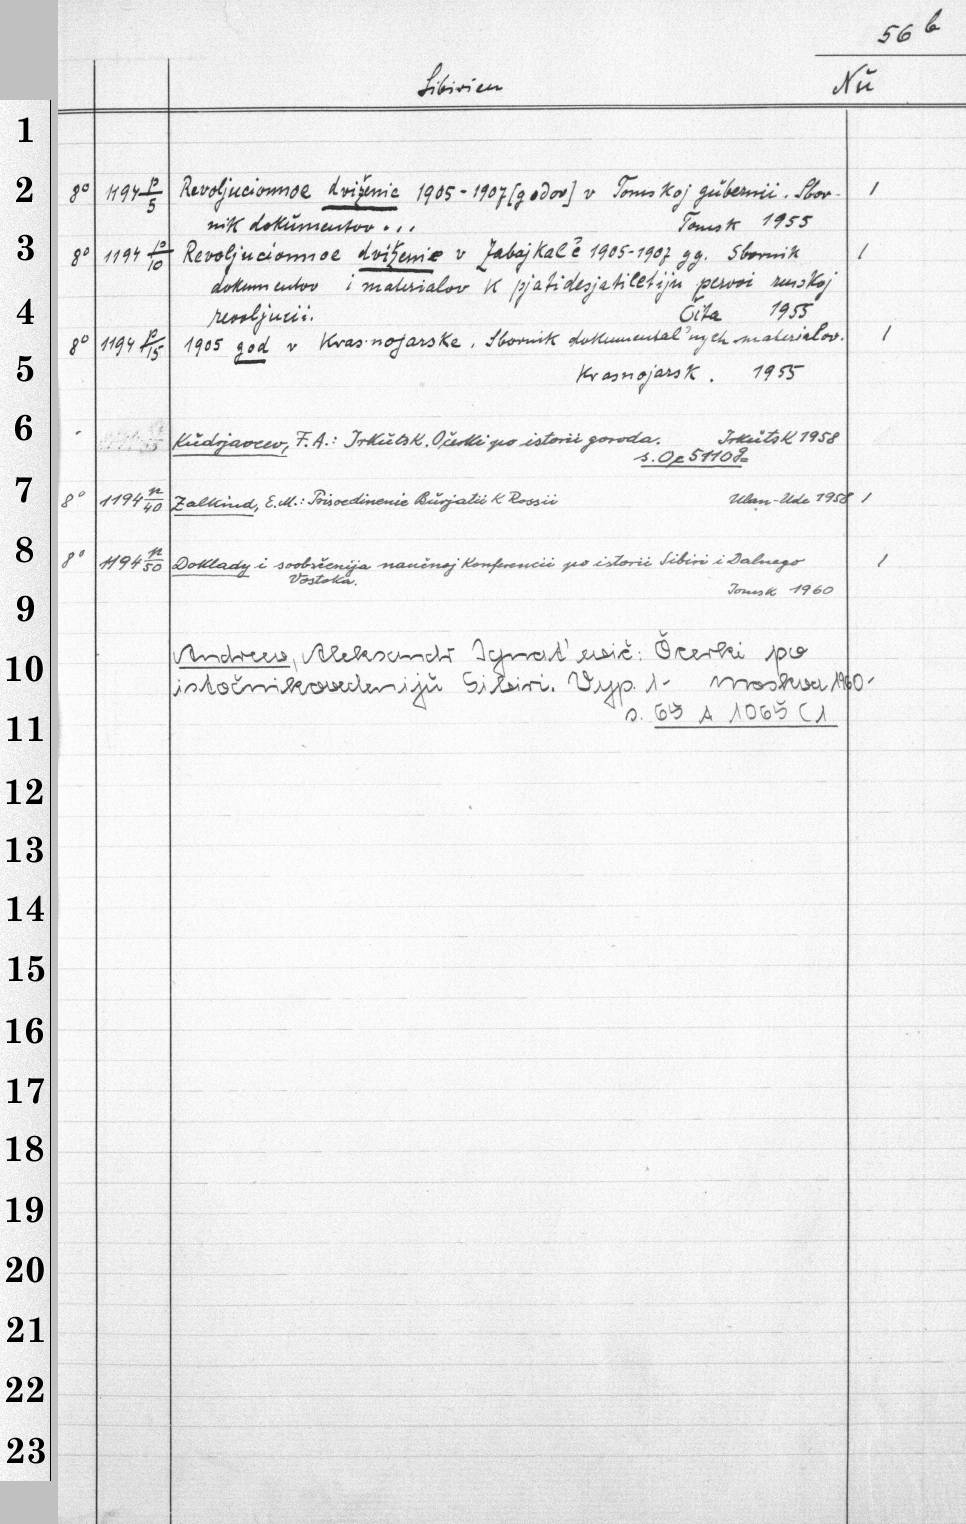 56 b
Sibirien
Nŭ
1
2 8° 1194 p/5 Revoljucionnoe dviženie 1905-1907 [godov] v Tomskoj gŭbernii. Sbor-
nik dokŭmentov... Tomsk 1955 1
3 8° 1194 p/10 Revoljucionnoe dviženie v Zabajkal'e 1905-1907 gg. Sbornik 1
dokumentov i materialov k pjatidesjatiletiju pervoi russkoj
4 revoljucii. Čita 1955
8° 1194 p/15 1905 god v Krasnojarske. Sbornik dokumental'nych materialov. 1
5 Krasnojarsk. 1955
6 Kŭdrjavcev, F.A.: Irkŭtsk. Očerki po istorii goroda. Irkŭtsk 1958
s. Op 5110
7 8° 1194 n/40 Zalkind, E.M.: Prisoedinenie Bŭrjatii k Rossii Ulan-Ude 1958 1
8 8° 1194 n/50 Doklady i soobščenija naučnoj konferencii po istorii Sibiri i Dalnego 1
Vostoka.
Tomsk 1960
9
10 Andreev, Aleksandr Ignat'evič: Očerki po
istočnikovedenijŭ Sibiri. Vyp. 1- Moskva 1960-
s. 65 A 1065 (1
11
12
13
14
15
16
17
18
19
20
21
22
23